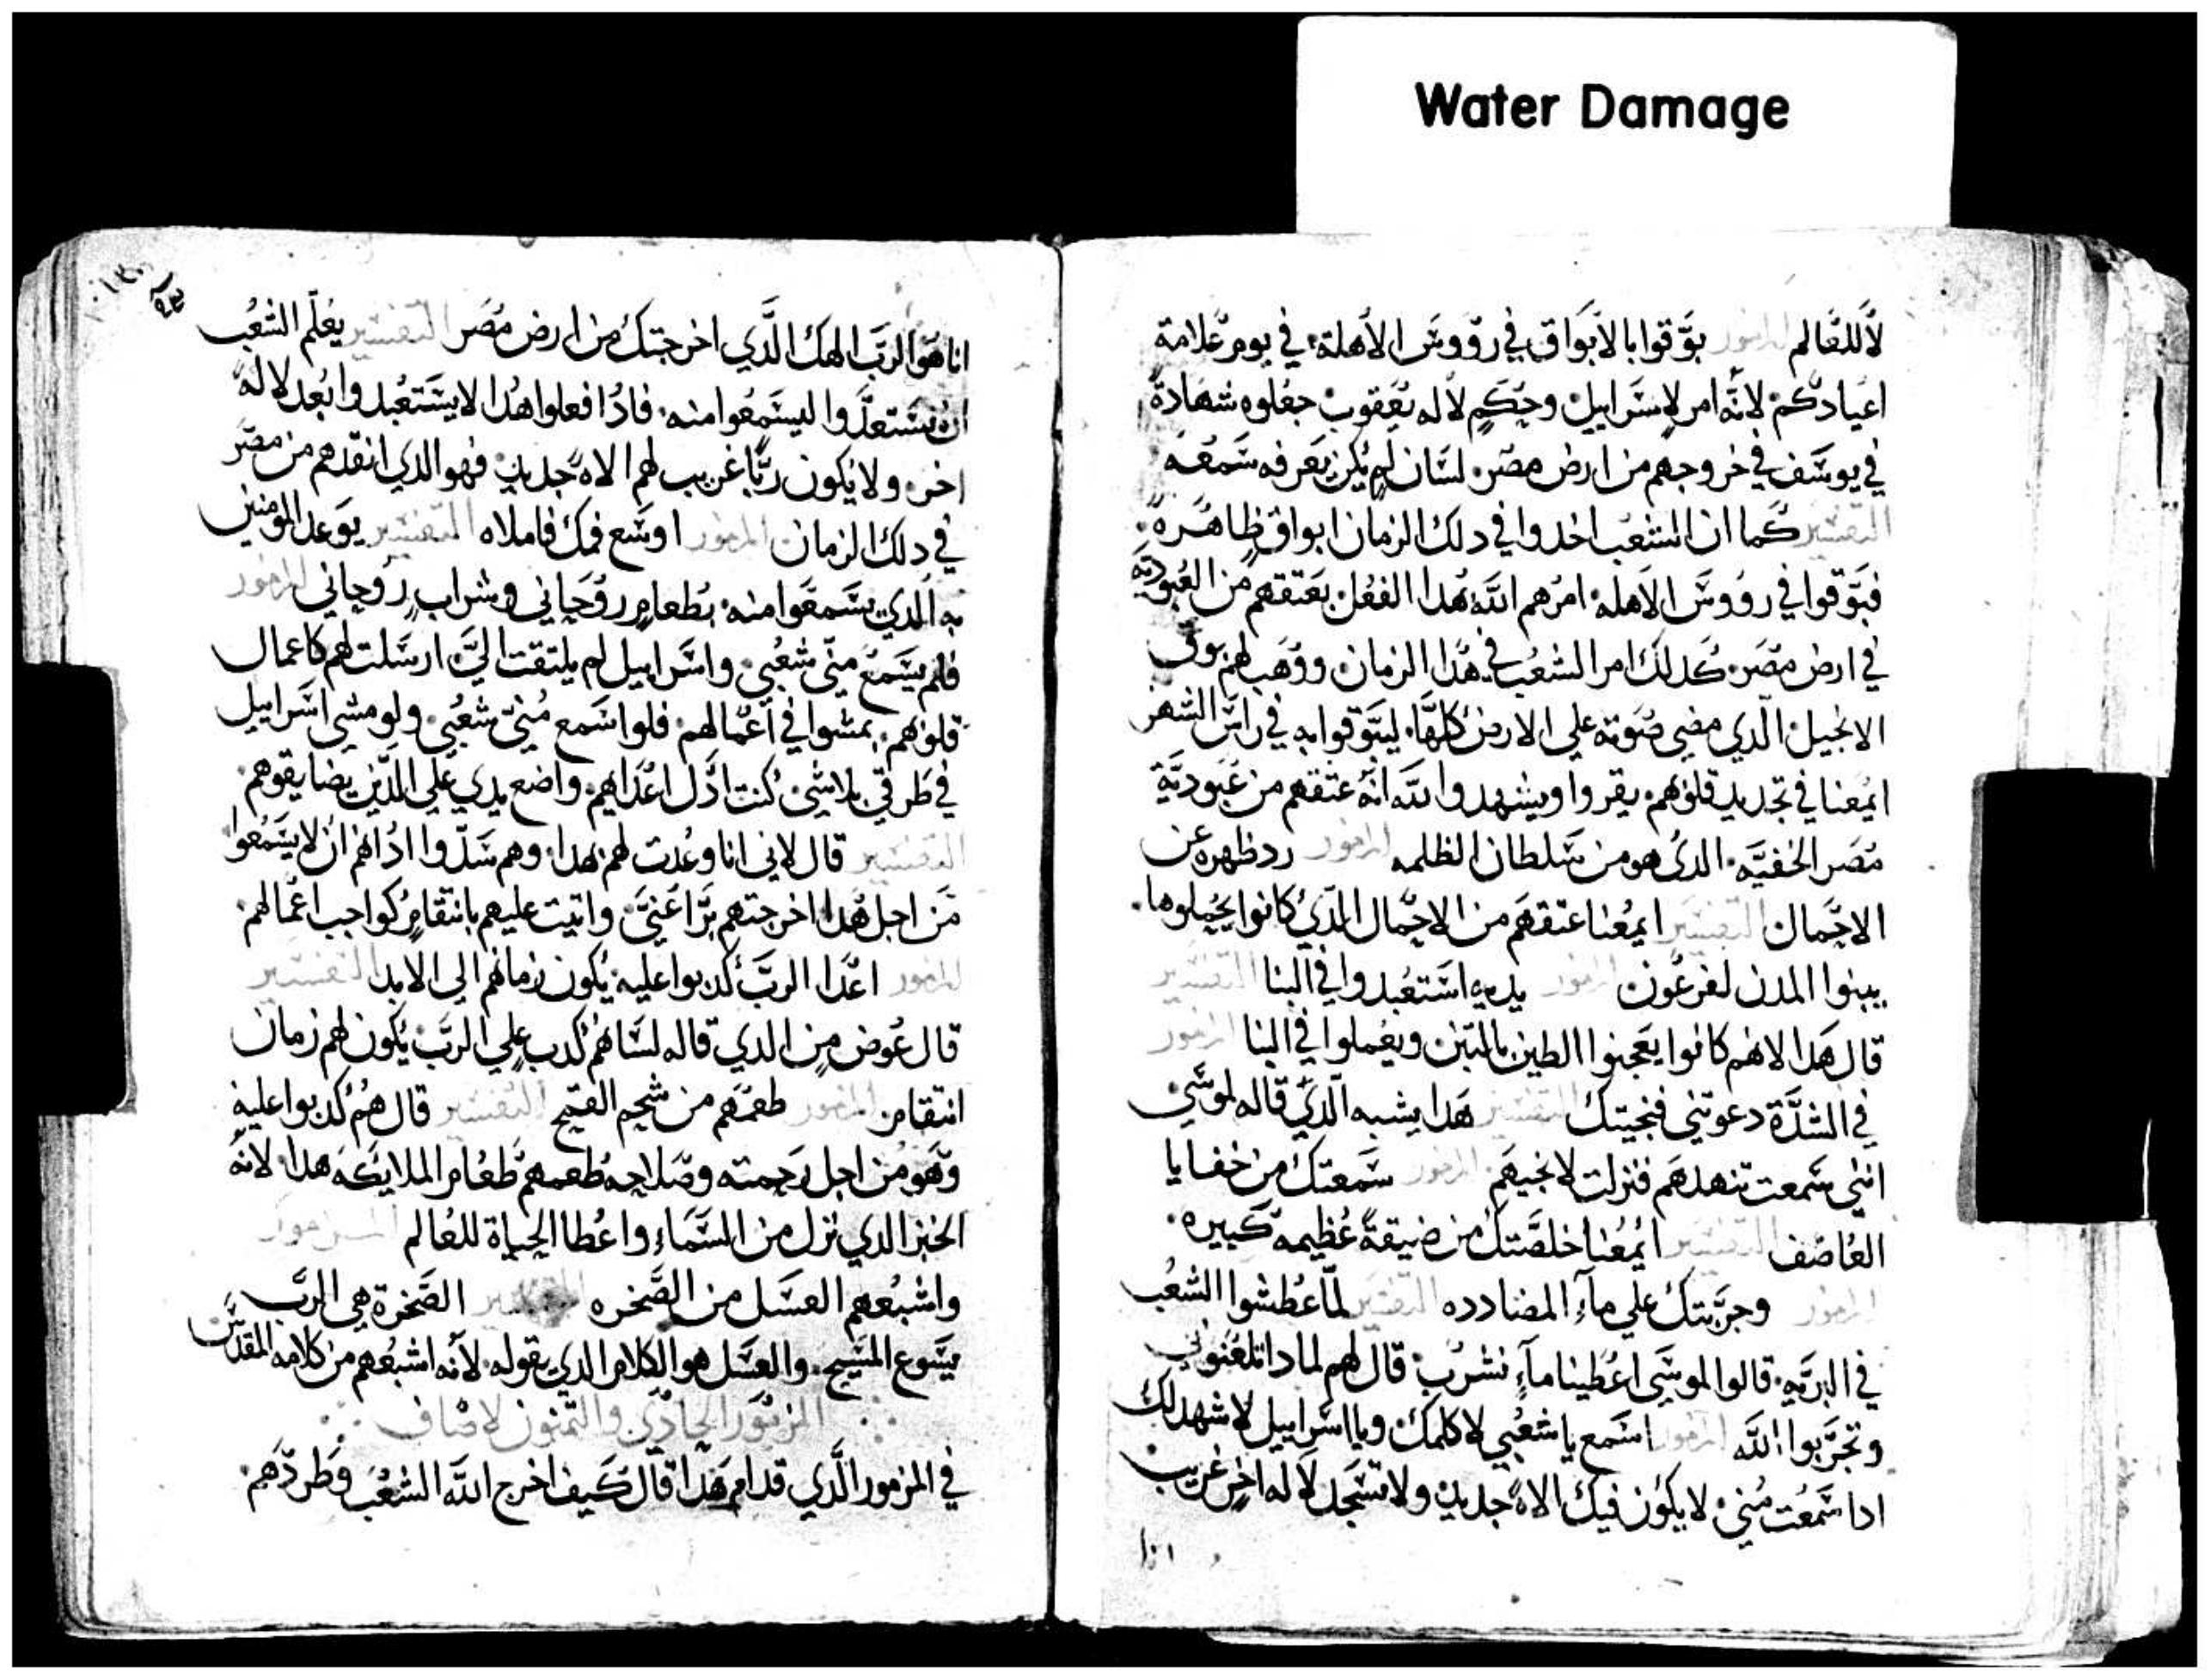 Water Damage
لاللقالم المزمور بوّقوا بالابواق في رووس الاهلة في يوم علامة
اعيادكم لانه امر لاسراييل وحكم لاله يعقوب جعلوه شهادة
في يوسف في خروجهم من ارض مصر لسان لم يكن يعرفه سمعه
التفسير كما ان الشعب اخدوا في دلك الزمان ابواق ظاهرة
فبوقوا في رووس الاهله امرهم الله هدا الفعل بعتقهم من العبودية
في ارض مصر كدلك امر الشعب في هدا الزمان ووهب لهم بوق
الانجيل الدي مضي صوته علي الارض كلها ليبوقوا به في راس الشهر
ايمعنا في تجديد قلوبهم يقروا ويشهدوا لله انه عتقهم من عبودية
مصر الخفيه الدي هو من سلطان الظلمه المزمور رد ظهره عن
الاحمال التفسير ايمعنا عتقهم من الاحمال الدي كانوا يحملوها
يبنوا المدن لفرعون المزمور يديه استعبدوا في البنا التفسير
قال هدا لانهم كانوا يعجنوا الطين بالتبن ويعملوا في البنا المزمور
في الشدة دعوتني فنجيتك التفسير هدا يشبه الدي قاله لموسي
انني سمعت تنهدهم فنزلت لانجيهم المزمور سمعتك من خفايا
العاصف التفسير ايمعنا خلصتك من ضيقة عظيمه كبيره
المزمور وجربتك علي مآء المضادده التفسير لما عطشوا الشعب
في البريه قالوا لموسي اعطينا مآء نشرب قال لهم لمادا تلعنوني
وتجربوا الله المزمور اسمع يا شعبي لاكلمك ويا اسراييل لاشهد لك
ادا سمعت مني لا يكون فيك الاه جديد ولا تسجد لاله اخر غريب
انا هو الرب الهك الدي اخرجتك من ارض مصر التفسير يعلم الشعب
ان يستعدوا ليسمعوا منه فادا فعلوا هدا لا يستعبدوا بعد لاله
اخر ولا يكون ربا غريب لهم الاه جديد فهو الدي انقدهم من مصر
في دلك الزمان المزمور اوسع فمك فاملاه التفسير يوعد المومنين
به الدي يسمعوا منه بطعام روحاني وشراب روحاني المزمور
فلم يسمع مني شعبي واسراييل لم يلتفت الي ارسلت لهم كاعمال
قلوبهم يمشوا في اعمالهم فلو اسمع مني شعبي ولو مشي اسراييل
في طرقي بلاشي كنت ادل اعداهم واضع يدي علي الدين يضايقوهم
التفسير قال لاني انا وعدت لهم بهدا وهم سدوا ادانهم ان لا يسمعوا
من اجل هدا اخرجتهم برا عني واتيت عليهم بانتقام كواجب اعمالهم
المزمور اعدا الرب كدبوا عليه يكون زمانهم الي الابد التفسير
قال عوض من الدي قاله لسانهم كدب علي الرب يكون لهم زمان
انتقام المزمور طعمهم من شحيم القمح التفسير قال هم كدبوا عليه
وهو من اجل رحمته وصلاحه طعمهم طعام الملايكه هدا لانه
الخبز الدي نزل من السماء واعطا الحياة للعالم المزمور
واشبعهم العسل من الصخره التفسير الصخرة هي الرب
يسوع المسيح والعسل هو الكلام الدي يقوله لانه اشبعهم من كلامه المقدس
المزمور الحادي والتمنون لاصاف
في المزمور الدي قدام هدا قال كيف اخرج الله الشعب وطردهم